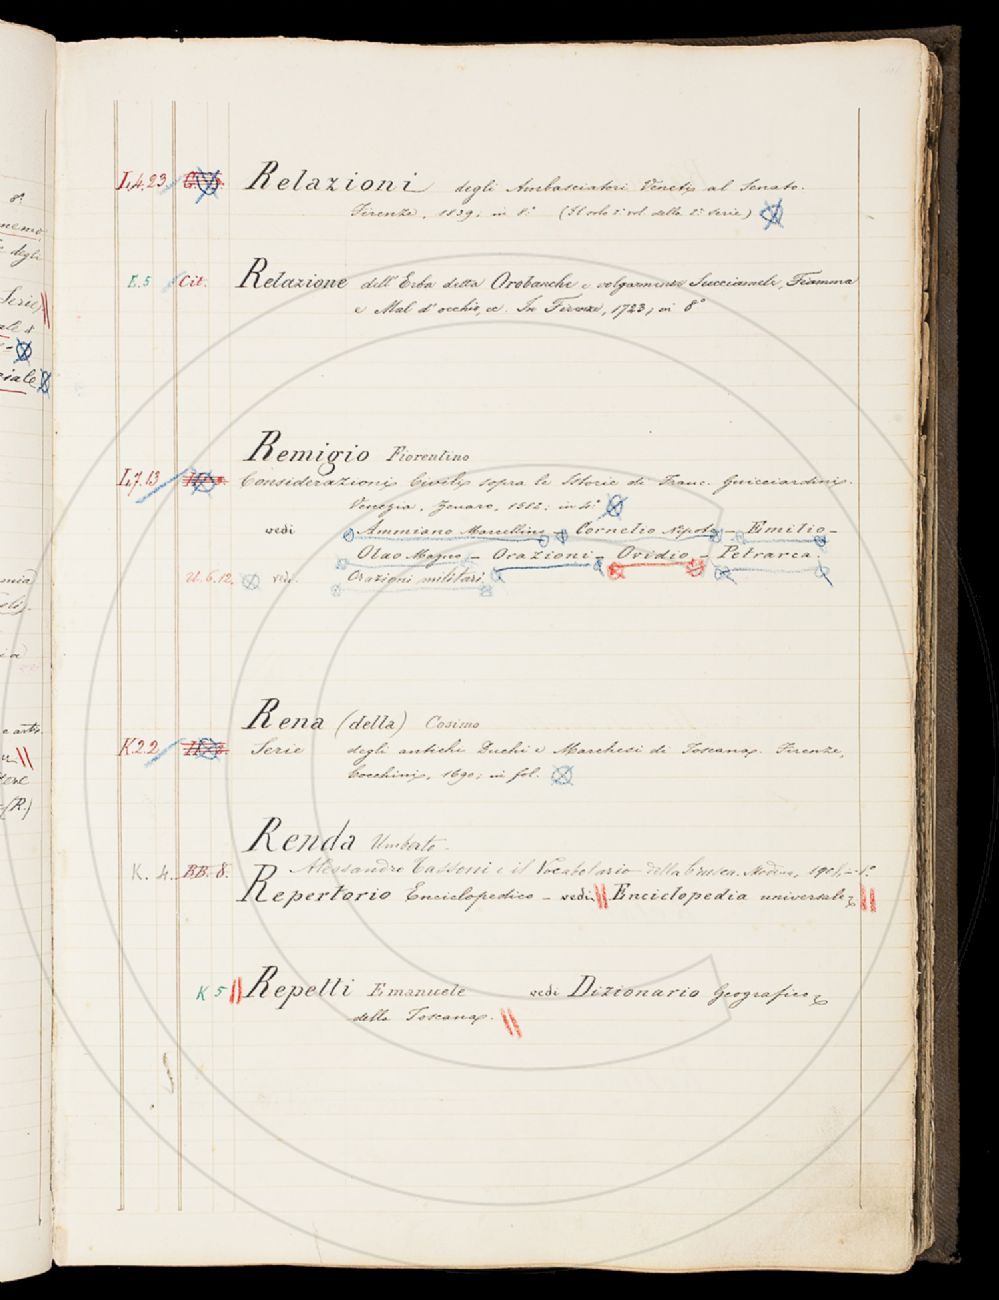 I,4.23 Relazioni degli Ambasciatori Veneti al Senato.
Firenze, 1839; in 8.° (Il solo 1° vol. della 2.a serie)
E.5 Cit. Relazione dell'Erba detta Orobanche e volgarmente Succiamele, Fiamma
e Mal d'occhio, ec. In Firenze, 1723; in 8°
Remigio Fiorentino
I,7.13 Considerazioni Civili sopra le Istorie di Franc. Guicciardini.
Venezia, Zenaro, 1582; in 4.°
vedi Ammiano Marcellino – Cornelio Nipote – Emilio –
Olao Magno – Orazioni – Ovidio – Petrarca.
U.6.12. vedi Orazioni militari
Rena (della) Cosimo
K.2.2 Serie degli antichi Duchi e Marchesi di Toscana. Firenze,
Cecchini, 1690; in fol.
Renda Umberto.
K. 4. BB. 8. Alessandro Tassoni e il Vocabolario della Crusca. Modena,
Repertorio Enciclopedico – vedi Enciclopedia universale
K 5 Repetti Emanuele vedi Dizionario Geografico
della Toscana.